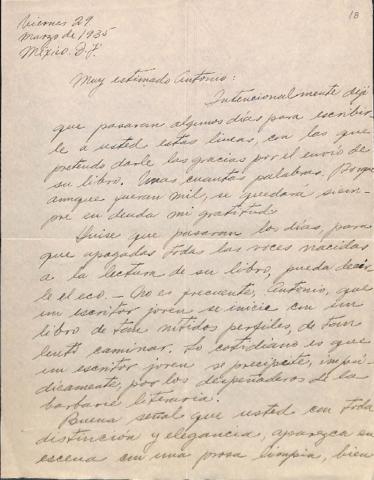 18
Viernes 29
Marzo de 1935
México. D.F.
Muy estimado Antonio:
Intencionalmente dejé
que pasaran algunos días para escribir
le a usted estas líneas, con las que
pretendo darle las gracias por el envío de
su libro. Unas cuantas palabras. Porque
aunque fueran mil, se quedará siem-
pre en deuda mi gratitud.
Quise que pasaran los días, para
que apagadas todas las voces nacidas
a la lectura de su libro, pueda decir
le el eco. — No es frecuente, Antonio, que
un escritor joven se inicie con un
libro de tan nítidos perfiles, de tan
lento caminar. Lo cotidiano es que
un escritor joven se precipite, impú-
dicamente, por los despeñaderos de la
barbarie literaria.
Buena señal que usted con toda
distinción y elegancia, aparezca en
escena con una prosa limpia, bien